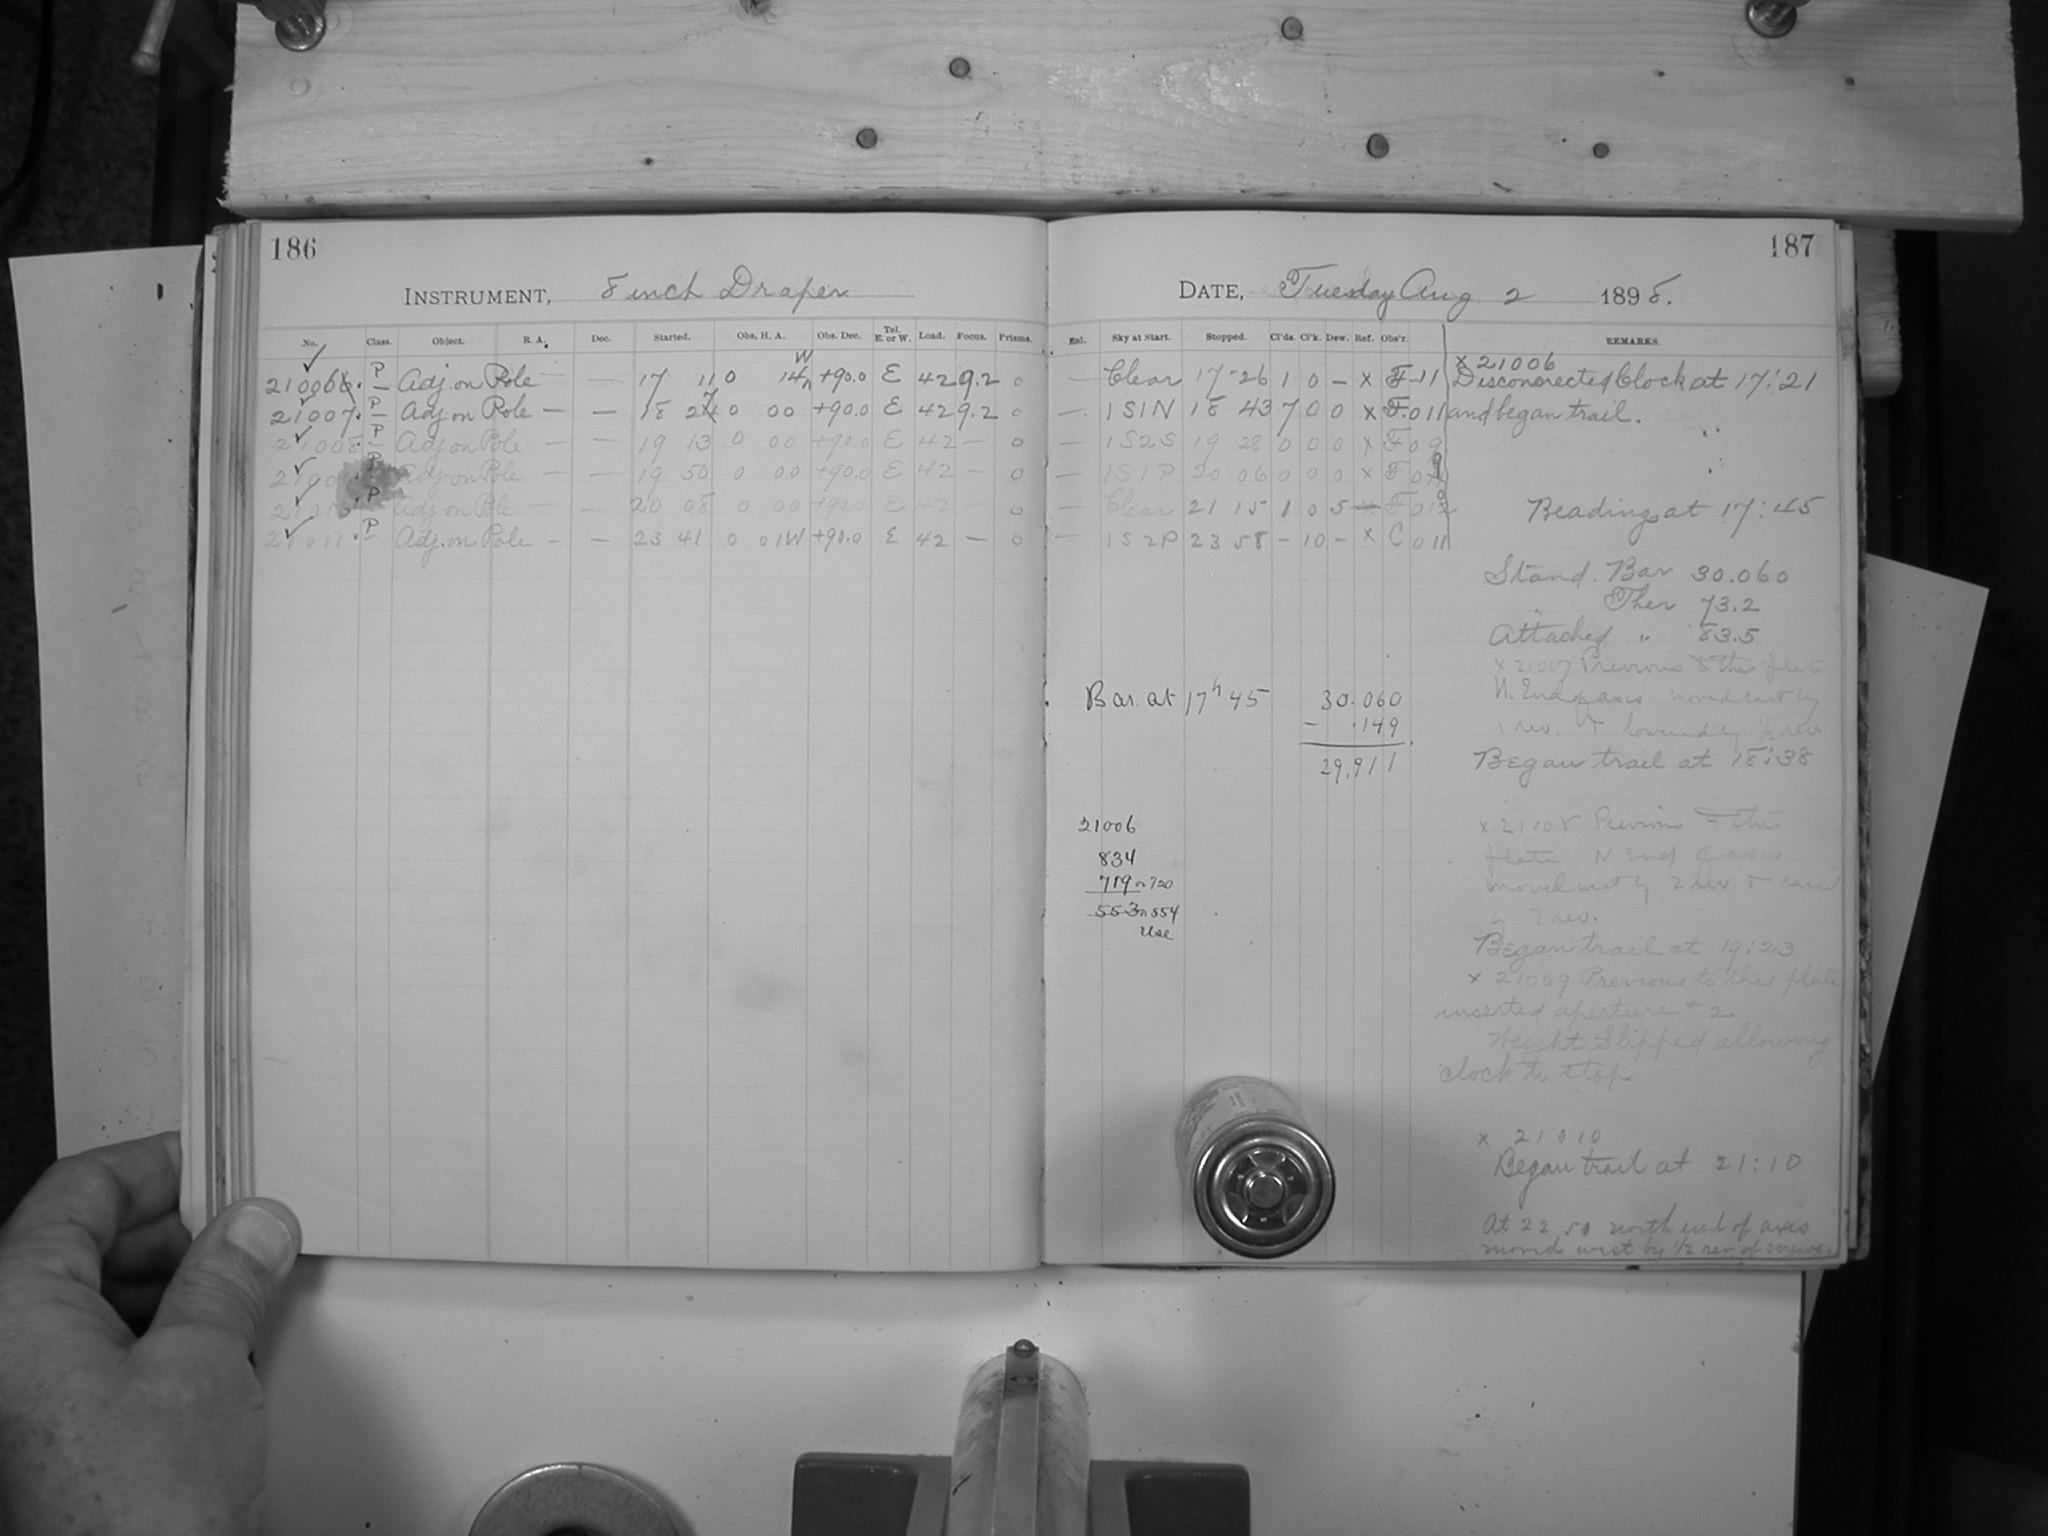 186
INSTRUMENT, 8 inch Draper
No. Class. Object. R. A. Dec. Started. Obs. H. A. Obs. Dec. Tel. E. or W. Load. Focus. Prisms.
21006 P Adj. on Pole — 17 11 0 14 W +90.0 E 42 9.2 0
21007. P Adj on Pole — — 18 27 0 00 +90.0 E 42 9.2 0
21008. P Adj on Pole — — 19 13 0 00 +90.0 E 42 — 0
2100 P Adj on Pole — — 19 50 0 00 +90.0 E 42 — 0
2101 P Adj on Pole — — 20 08 0 00 +90.0 E 42 — 0
21011. P Adj. on Pole — — 23 41 0 01W +90.0 E 42 — 0
187
DATE, Tuesday Aug 2 1898.
Enl. Sky at Start. Stopped. Cl'ds. Cl'k. Dew. Ref. Obs'r. REMARKS.
— Clear 17 26 1 0 — x F 11
— 1S1N 18 43 7 0 0 x F. 011
— 1S2S 19 28 0 0 0 x F 09
— 1S1P 20 06 0 0 0 x F 0
— Clear 21 15 1 0 5 F 012
— 1S2P 23 58 — 10 — x C 011
x 21006
Disconnected Clock at 17:21
and began trail.
Readings at 17:45
Stand. Bar 30.060
Ther 73.2
Attached " 83.5
x 21007 Previous to this plate
N. End of axis moved east by
1 rev. & lowered by 1/2 rev
Began trail at 18:38
Bar. at 17h 45 30.060
- .149
29.911
21006
834
719 or 720
553 or 554
Use
x 21008 Previous to this
plate N End of axis
moved west by 2 rev & raised
by 7 rev.
Began trail at 19:23
x 21009 Previous to this plate
inserted aperture #2
Weight Slipped allowing
clock to stop
x 21010
Began trail at 21:10
At 22 50 north end of axis
moved west by 1/2 rev. of screws.